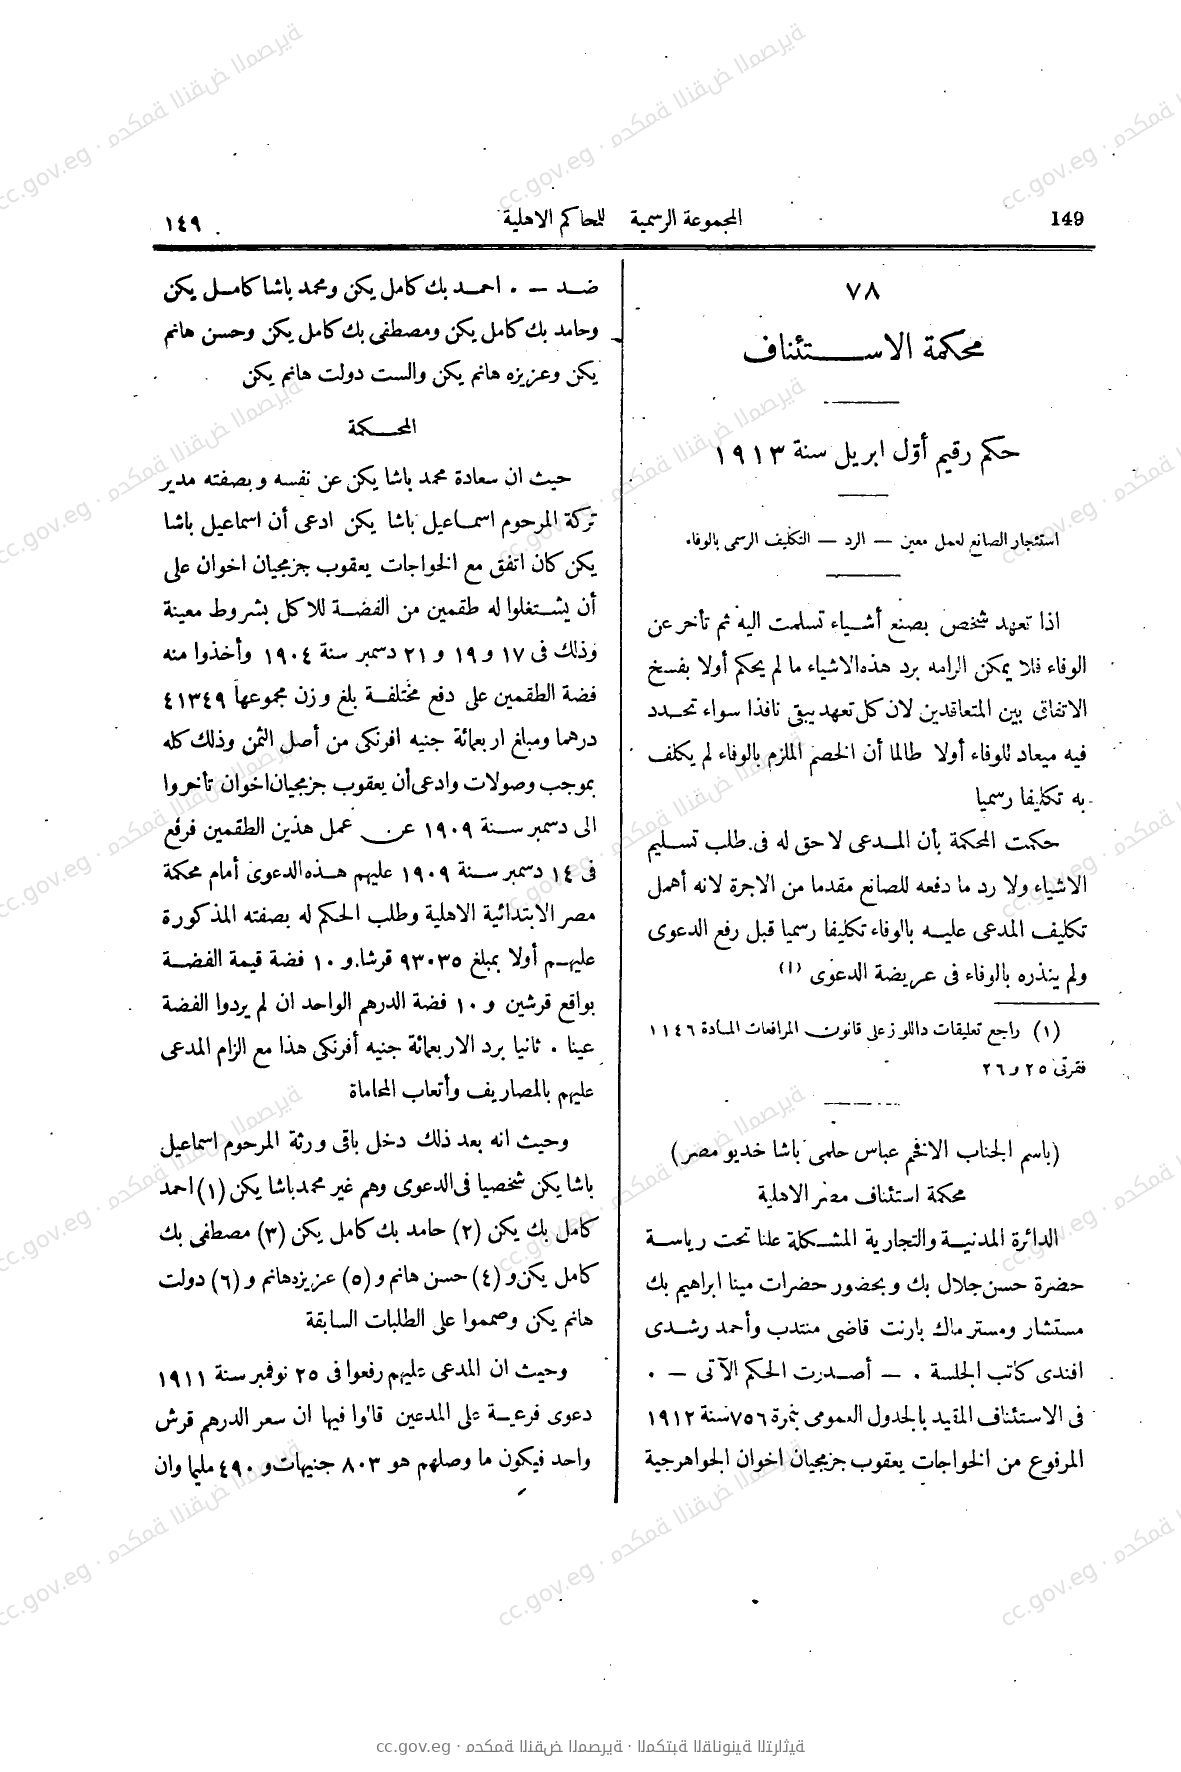 149 المجموعة الرسمية للمحاكم الاهلية ١٤٩
٧٨
محكمة الاستئناف
حكم رقيم أوّل ابريل سنة ١٩١٣
استئجار الصانع لعمل معين — الرد — التكليف الرسمى بالوفاء
اذا تعهد شخص بصنع أشياء تسلمت اليه ثم تأخر عن
الوفاء فلا يمكن الزامه برد هذه الاشياء ما لم يحكم أولا بفسخ
الاتفاق بين المتعاقدين لان كل تعهد يبقى نافذا سواء تحدد
فيه ميعاد للوفاء أولا طالما أن الخصم الملزم بالوفاء لم يكلف
به تكليفا رسميا
حكمت المحكمة بأن المدعى لا حق له فى طلب تسليم
الاشياء ولا رد ما دفعه للصانع مقدما من الاجرة لانه أهمل
تكليف المدعى عليه بالوفاء تكليفا رسميا قبل رفع الدعوى
ولم ينذره بالوفاء فى عريضة الدعوى (١)
(١) راجع تعليقات داللوز على قانون المرافعات المادة ١١٤٦
فقرتى ٢٥ و ٢٦
(باسم الجناب الافخم عباس حلمى باشا خديو مصر)
محكمة استئناف مصر الاهلية
الدائرة المدنية والتجارية المشكلة علنا تحت رياسة
حضرة حسن جلال بك وبحضور حضرات مينا ابراهيم بك
مستشار ومستر ماك بارنت قاضى منتدب وأحمد رشدى
افندى كاتب الجلسة . — أصدرت الحكم الآتى — .
فى الاستئناف المقيد بالجدول العمومى بنمرة ٧٥٦ سنة ١٩١٢
المرفوع من الخواجات يعقوب جزمجيان اخوان الجواهرجية
ضد — . احمد بك كامل يكن ومحمد باشا كامل يكن
وحامد بك كامل يكن ومصطفى بك كامل يكن وحسن هانم
يكن وعزيزه هانم يكن والست دولت هانم يكن
المحكمة
حيث ان سعادة محمد باشا يكن عن نفسه وبصفته مدير
تركة المرحوم اسماعيل باشا يكن ادعى أن اسماعيل باشا
يكن كان اتفق مع الخواجات يعقوب جزمجيان اخوان على
أن يشتغلوا له طقمين من الفضة للاكل بشروط معينة
وذلك فى ١٧ و ١٩ و ٢١ دسمبر سنة ١٩٠٤ وأخذوا منه
فضة الطقمين على دفع مختلفة بلغ وزن مجموعها ٤١٣٤٩
درهما ومبلغ اربعمائة جنيه افرنكى من أصل الثمن وذلك كله
بموجب وصولات وادعى أن يعقوب جزمجيان اخوان تأخروا
الى دسمبر سنة ١٩٠٩ عن عمل هذين الطقمين فرفع
فى ١٤ دسمبر سنة ١٩٠٩ عليهم هذه الدعوى أمام محكمة
مصر الابتدائية الاهلية وطلب الحكم له بصفته المذكورة
عليهم أولا بمبلغ ٩٣٠٣٥ قرشا و ١٠ فضة قيمة الفضة
بواقع قرشين و ١٠ فضة الدرهم الواحد ان لم يردوا الفضة
عينا . ثانيا برد الاربعمائة جنيه أفرنكى هذا مع الزام المدعى
عليهم بالمصاريف وأتعاب المحاماة
وحيث انه بعد ذلك دخل باقى ورثة المرحوم اسماعيل
باشا يكن شخصيا فى الدعوى وهم غير محمد باشا يكن (١) احمد
كامل بك يكن (٢) حامد بك كامل يكن (٣) مصطفى بك
كامل يكن و (٤) حسن هانم و (٥) عزيزه هانم و (٦) دولت
هانم يكن وصمموا على الطلبات السابقة
وحيث ان المدعى عليهم رفعوا فى ٢٥ نوفمبر سنة ١٩١١
دعوى فرعية على المدعين قالوا فيها ان سعر الدرهم قرش
واحد فيكون ما وصلهم هو ٨٠٣ جنيهات و ٤٩٠ مليما وان
cc.gov.eg · محكمة النقض المصرية · المكتبة القانونية التراثية